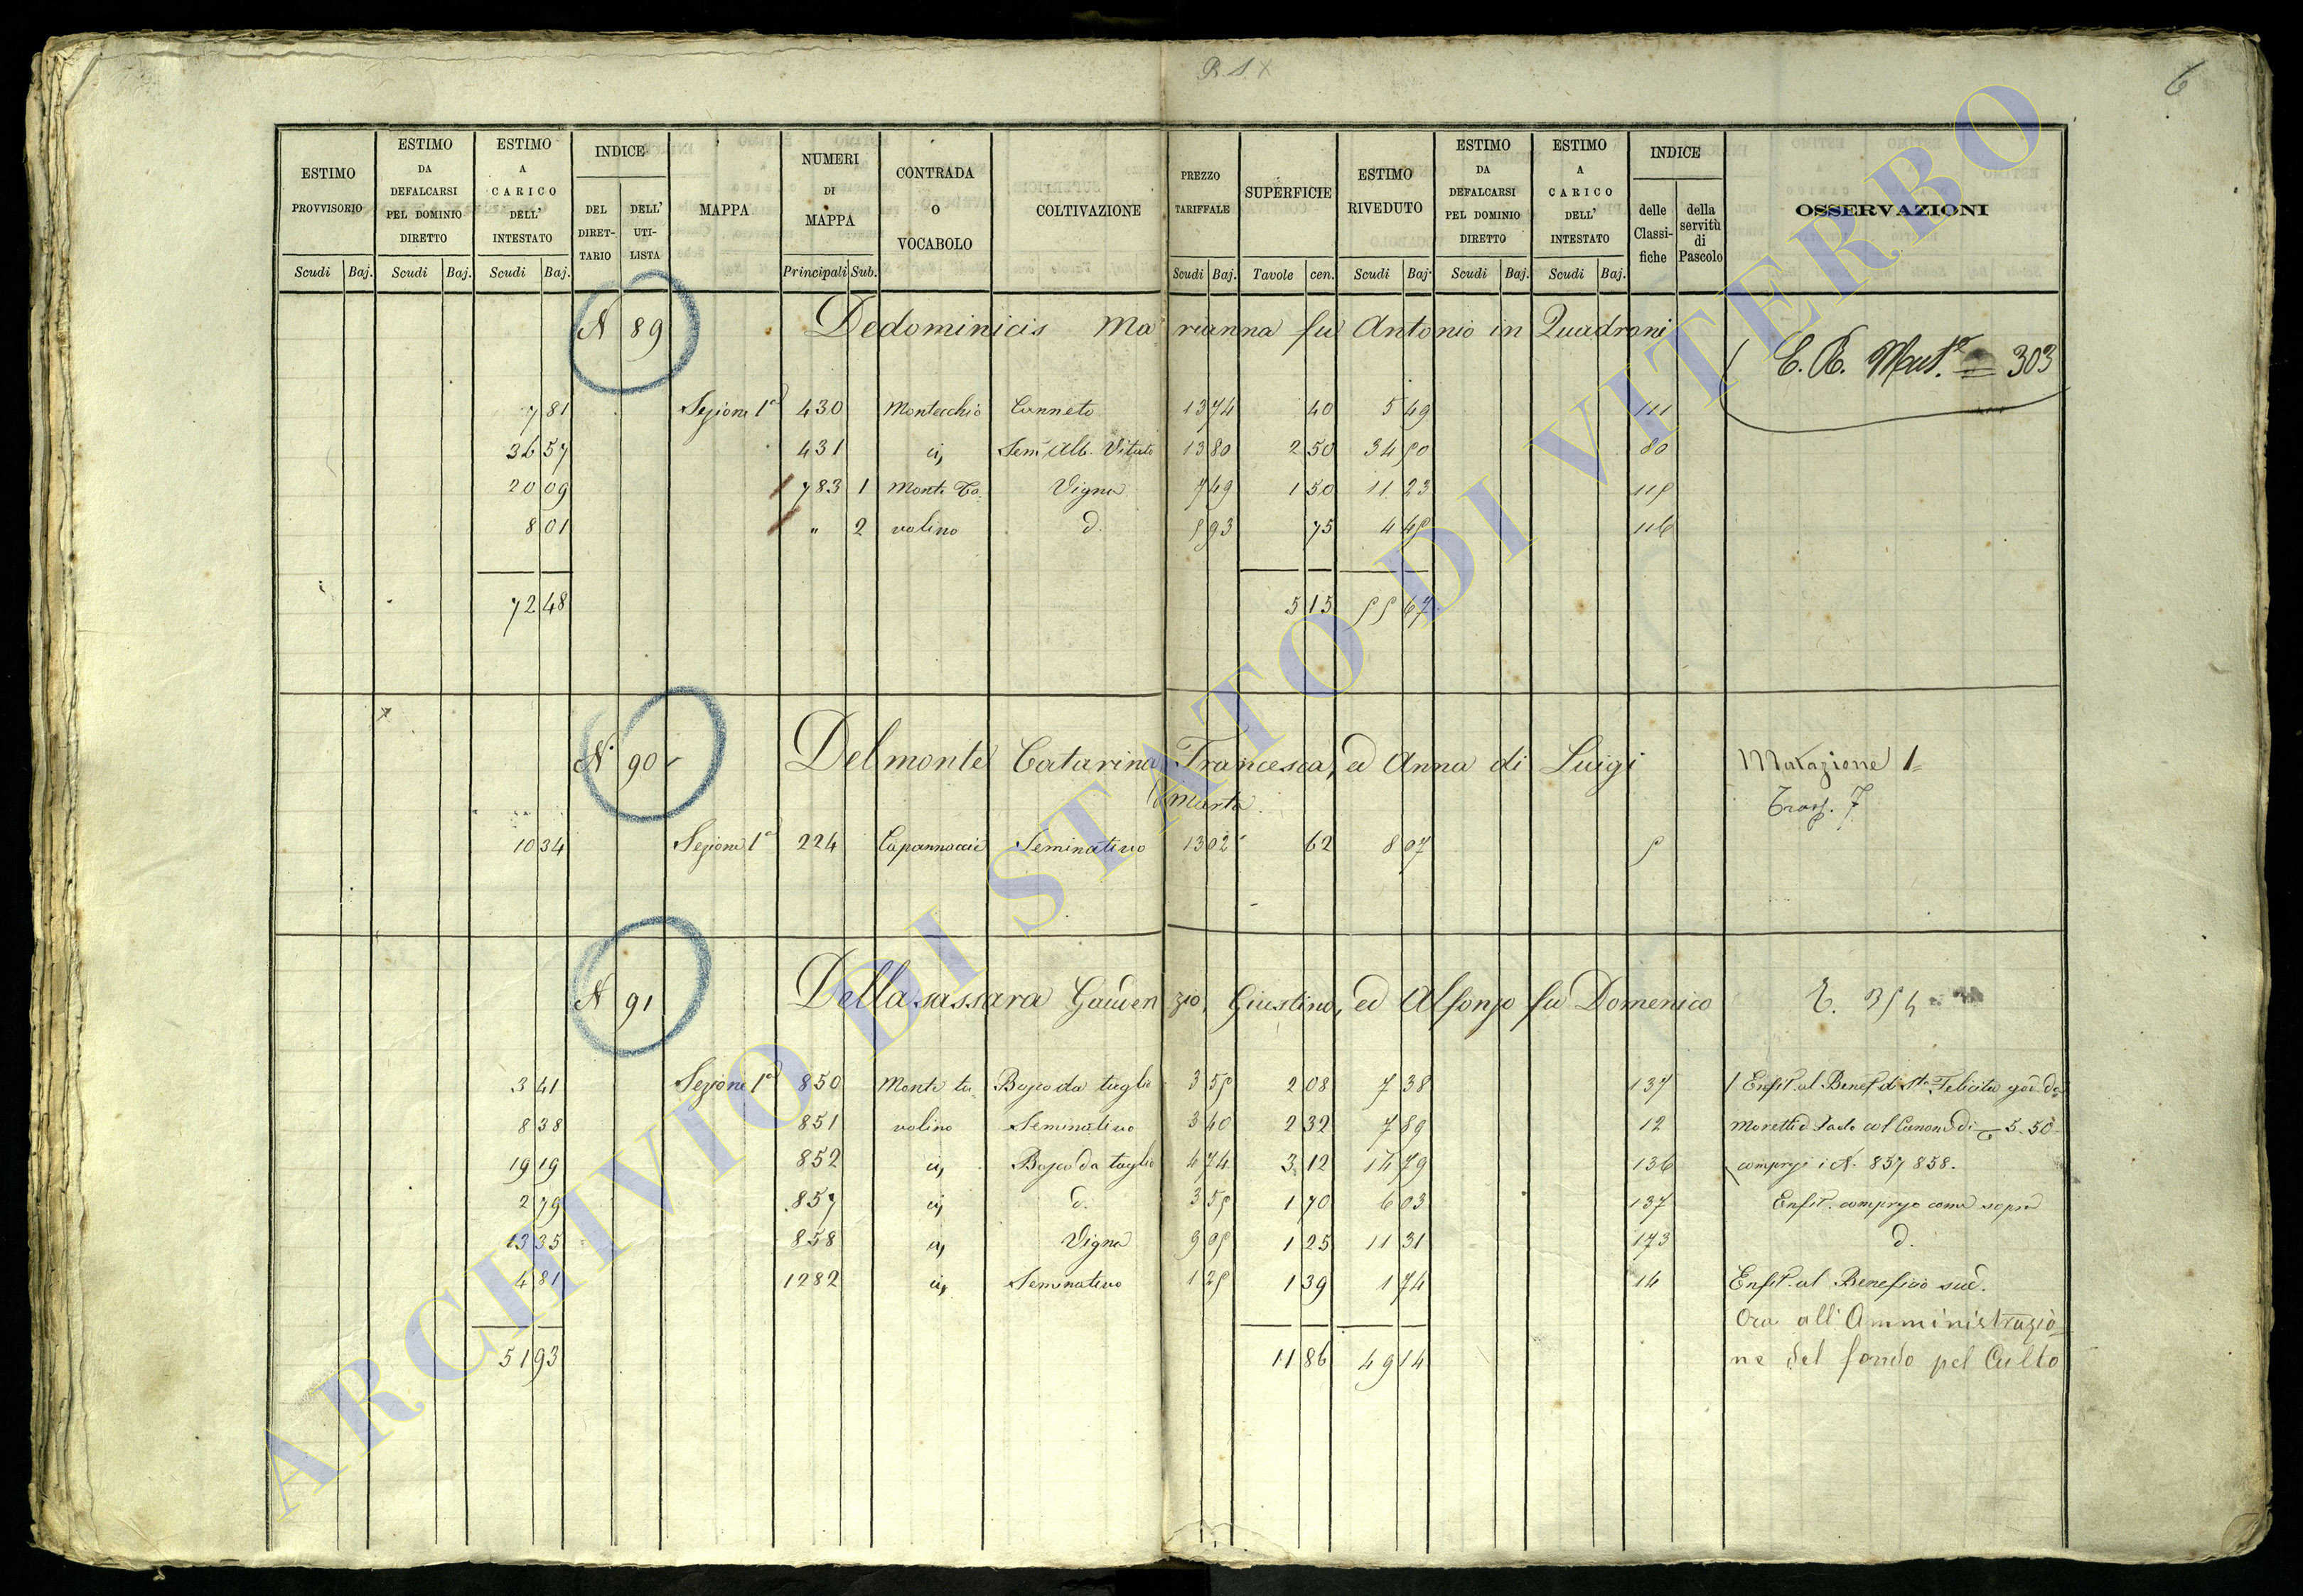 R. S. X
6
ESTIMO PROVVISORIO | ESTIMO DA DEFALCARSI PEL DOMINIO DIRETTO | ESTIMO A CARICO DELL' INTESTATO | INDICE DEL DIRETTARIO | DELL' UTILISTA | MAPPA | NUMERI DI MAPPA | CONTRADA O VOCABOLO | COLTIVAZIONE | PREZZO TARIFFALE | SUPERFICIE | ESTIMO RIVEDUTO | ESTIMO DA DEFALCARSI PEL DOMINIO DIRETTO | ESTIMO A CARICO DELL' INTESTATO | INDICE delle Classifiche | della servitù di Pascolo | OSSERVAZIONI
Scudi Baj. | Scudi Baj. | Scudi Baj. | Principali Sub. | Scudi Baj. | Tavole cen. | Scudi Baj. | Scudi Baj. | Scudi Baj.
N 89 Dedominicis Marianna fu Antonio in Quadrani
C. R. Mut.e 303
7 81 Sezione 1a 430 Montecchio Canneto 13 74 40 5 49 111
36 57 431 id, Sem Alb. Vitato 13 80 2 50 34 50 80
20 09 783 1 Monte Ta- Vigna 7 49 1 50 11 23 115
8 01 " 2 volino d. 5 93 75 4 45 116
72 48 5 15 55 67
N. 90 Delmonte Catarina Francesca, ed Anna di Luigi Mutazione 1
Marta Trasp. 7
10 34 Sezione 1a 224 Capannaccie Seminativo 13 02 62 8 07 5
N 91 Dellasassara Gauden zio, Giustino, ed Alfonso fu Domenico
3 41 Sezione 1a 850 Monte ta- Bosco da taglio 3 55 2 08 7 38 137 Enfit. al Benef. di Sta Felicita
8 38 851 volino Seminativo 3 40 2 32 7 89 12 Moretti d. Paolo col Canone di 5.50
19 19 852 id, Bosco da taglio 4 74 3 12 14 79 136 compresi i N. 857 858.
2 79 857 id, d. 3 55 1 70 6 03 137 Enfit. compreso come sopra
13 35 858 id, Vigna 9 05 1 25 11 31 173 d.
4 81 1282 id, Seminativo 1 25 1 39 1 74 14 Enfit. al Beneficio sud.
Ora all'Amministrazio-
51 93 11 86 49 14 ne del fondo pel Culto
ARCHIVIO DI STATO DI VITERBO